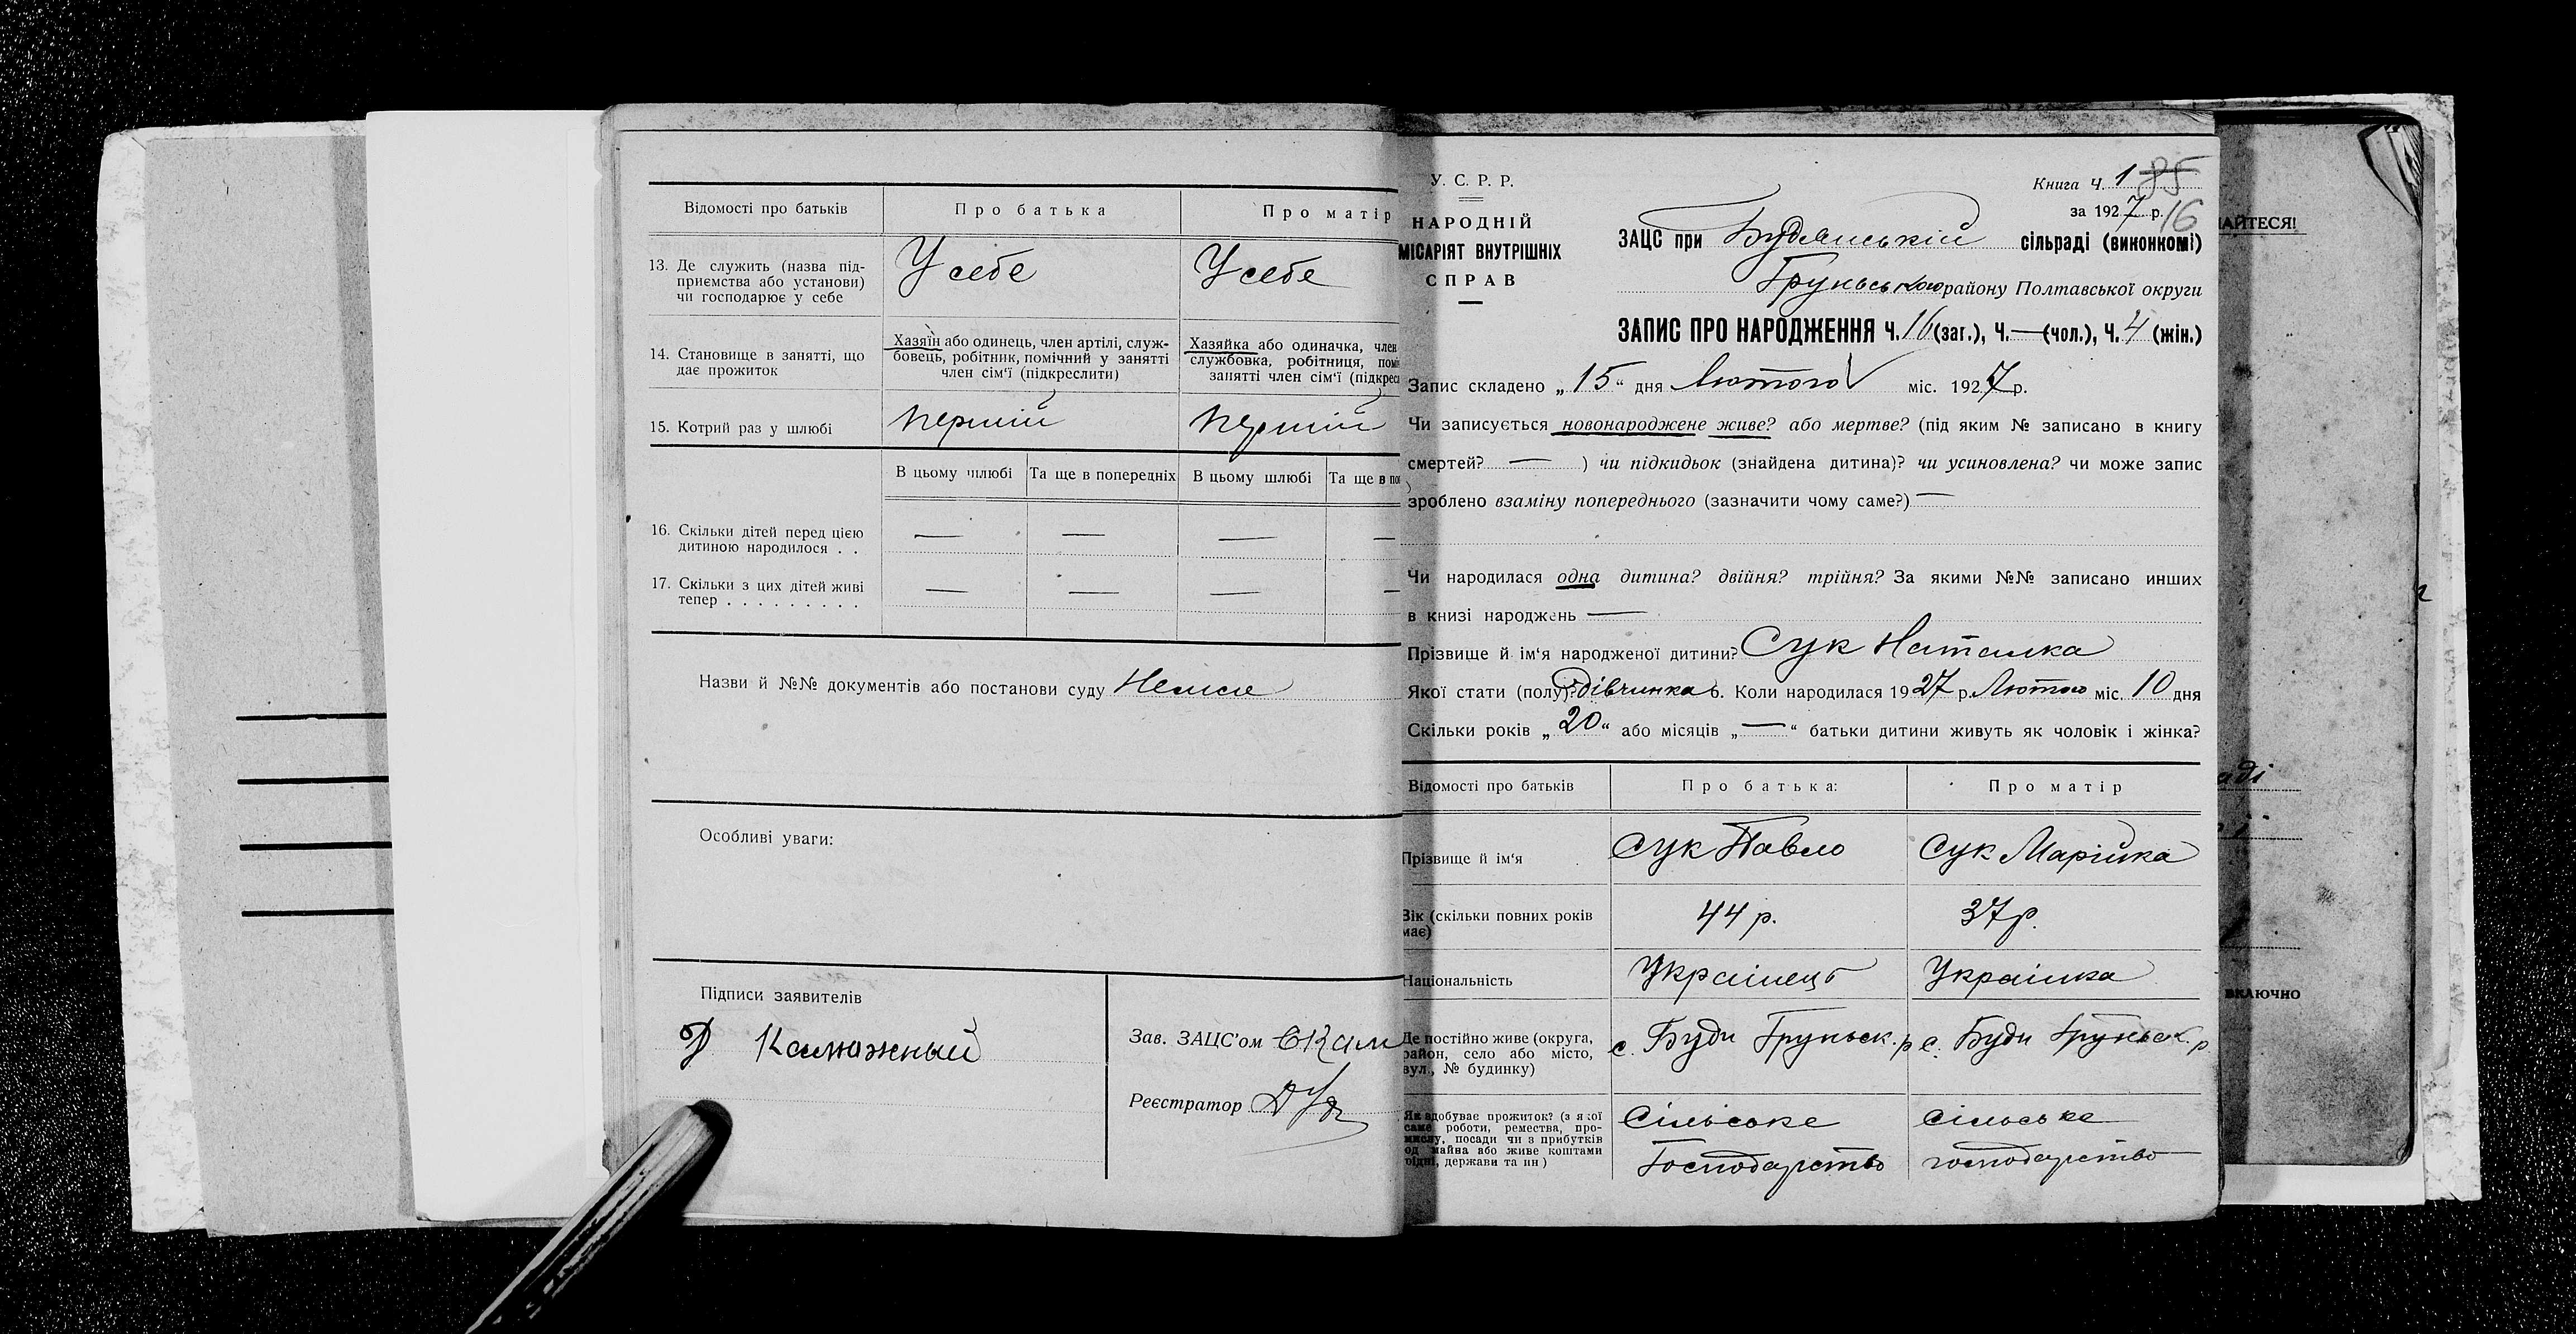 Відомості про батьків
Про батька
Про матір
13. Де служить (назва під-
приємства або установи)
чи господарює у себе
У себе
У себе
14. Становище в занятті, що
дає прожиток
Хазяїн або одинець, член артілі, служ-
бовець, робітник, помічний у занятті
член сім'ї (підкреслити)
Хазяйка або одиначка, член
службовка, робітниця,
занятті член сім'ї
15. Котрий раз у шлюбі
перший
перший
В цьому шлюбі
Та ще в попередніх
В цьому шлюбі
Та ще в
16. Скільки дітей перед цією
дитиною народилося . .
— — — —
17. Скільки з цих дітей живі
тепер . . . . . . . . .
— — — —
Назви й №№ документів або постанови суду Немає
Особливі уваги:
Підписи заявителів
Калюжный
Зав. ЗАЦС'ом
Реєстратор
У. С. Р. Р.
НАРОДНІЙ
МІСАРІЯТ ВНУТРІШНІХ
СПРАВ
Книга Ч. 1 85
за 1927 р. 16
ЗАЦС при Будянській сільраді (виконкомі)
Груньського району Полтавської округи
ЗАПИС ПРО НАРОДЖЕННЯ Ч. 16 (заг.), Ч. — (чол.), Ч. 4 (жін.)
Запис складено „15“ дня Лютого міс. 1927 р.
Чи записується новонароджене живе? або мертве? (під яким № записано в книгу
смертей? — ) чи підкидьок (знайдена дитина)? чи усиновлена? чи може запис
зроблено взаміну попереднього (зазначити чому саме?) —
Чи народилася одна дитина? двійня? трійня? За якими №№ записано инших
в книзі народжень —
Прізвище й ім'я народженої дитини? Сук Наталка
Якої стати (полу)? Дівчинка 6. Коли народилася 1927 р. Лютого міс. 10 дня
Скільки років „20“ або місяців „—“ батьки дитини живуть як чоловік і жінка?
Відомості про батьків
Про батька:
Про матір
Прізвище й ім'я
Сук Павло
Сук Марійка
Вік (скільки повних років
має)
44 р.
37 р.
Національність
Українець
Українка
Де постійно живе (округа,
район, село або місто,
вул., № будинку)
с. Буди Груньск. р
с. Буди Груньск. р
Як здобуває прожиток? (з якої
саме роботи, ремества, про-
мислу, посади чи з прибутків
од майна або живе коштами
рідні, держави та ин)
Сільське
Господарство
сільське
господарство
АЙТЕСЯ!
аді
ВКЛЮЧНО